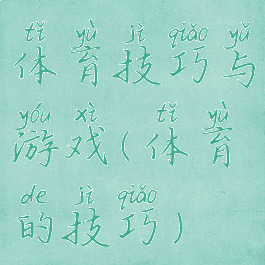 tǐ yù jì qiǎo yǔ
体育技巧与
yóu xì tǐ yù
游戏(体育
de jì qiǎo
的技巧)